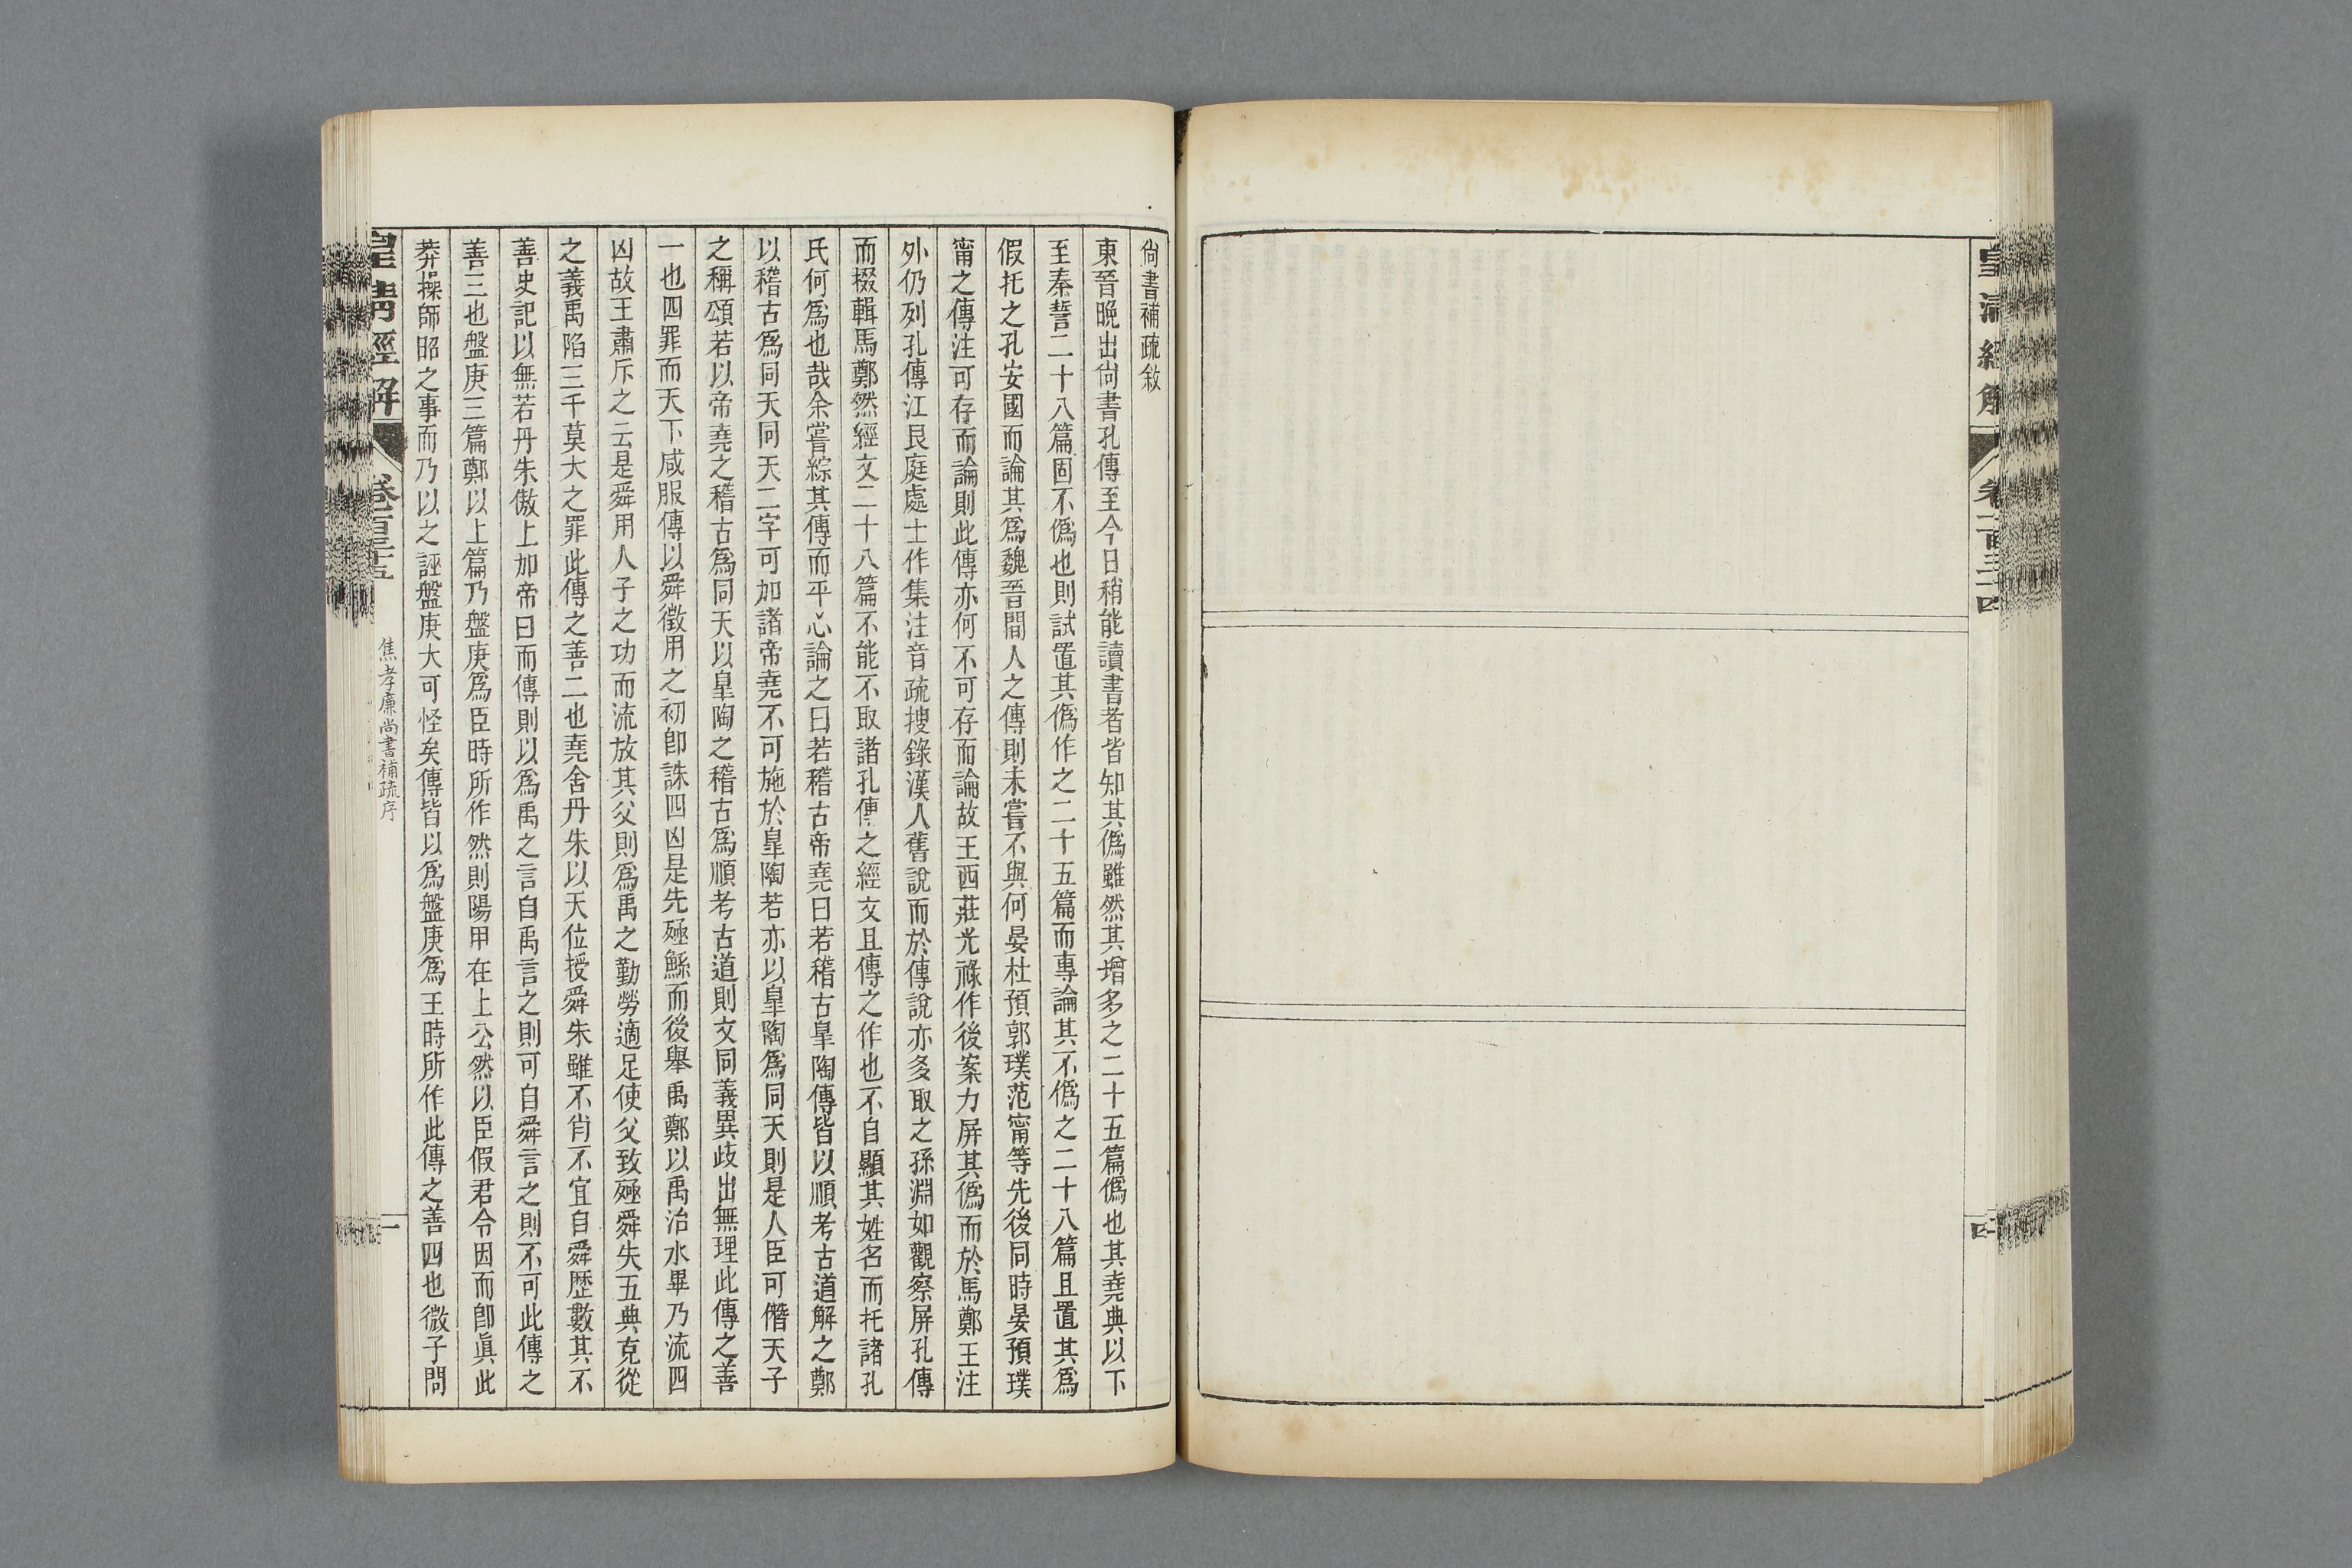 皇清經解
卷一百三十四
四
尙書補疏敘
東晉晚出尙書孔傳至今日稍能讀書者皆知其僞雖然其增多之二十五篇僞也其堯典以下
至秦誓二十八篇固不僞也則試置其僞作之二十五篇而專論其不僞之二十八篇且置其爲
假托之孔安國而論其爲魏晉間人之傳則未嘗不與何晏杜預郭璞范甯等先後同時晏預璞
甯之傳注可存而論則此傳亦何不可存而論故王西莊光祿作後案力屏其僞而於馬鄭王注
外仍列孔傳江艮庭處士作集注音疏搜錄漢人舊說而於傳說亦多取之孫淵如觀察屏孔傳
而掇輯馬鄭然經文二十八篇不能不取諸孔傳之經文且傳之作也不自顯其姓名而托諸孔
氏何爲也哉余嘗綜其傳而平心論之曰若稽古帝堯曰若稽古皐陶傳皆以順考古道解之鄭
以稽古爲同天同天二字可加諸帝堯不可施於皐陶若亦以皐陶爲同天則是人臣可僭天子
之稱頌若以帝堯之稽古爲同天以皐陶之稽古爲順考古道則文同義異歧出無理此傳之善
一也四罪而天下咸服傳以舜徵用之初卽誅四凶是先殛鯀而後舉禹鄭以禹治水畢乃流四
凶故王肅斥之云是舜用人子之功而流放其父則爲禹之勤勞適足使父致殛舜失五典克從
之義禹陷三千莫大之罪此傳之善二也堯舍丹朱以天位授舜朱雖不肖不宜自舜歷數其不
善史記以無若丹朱傲上加帝曰而傳則以爲禹之言自禹言之則可自舜言之則不可此傳之
善三也盤庚三篇鄭以上篇乃盤庚爲臣時所作然則陽甲在上公然以臣假君令因而卽眞此
莽操師昭之事而乃以之誣盤庚大可怪矣傳皆以爲盤庚爲王時所作此傳之善四也微子問
皇清經解
焦孝廉尚書補疏序
一